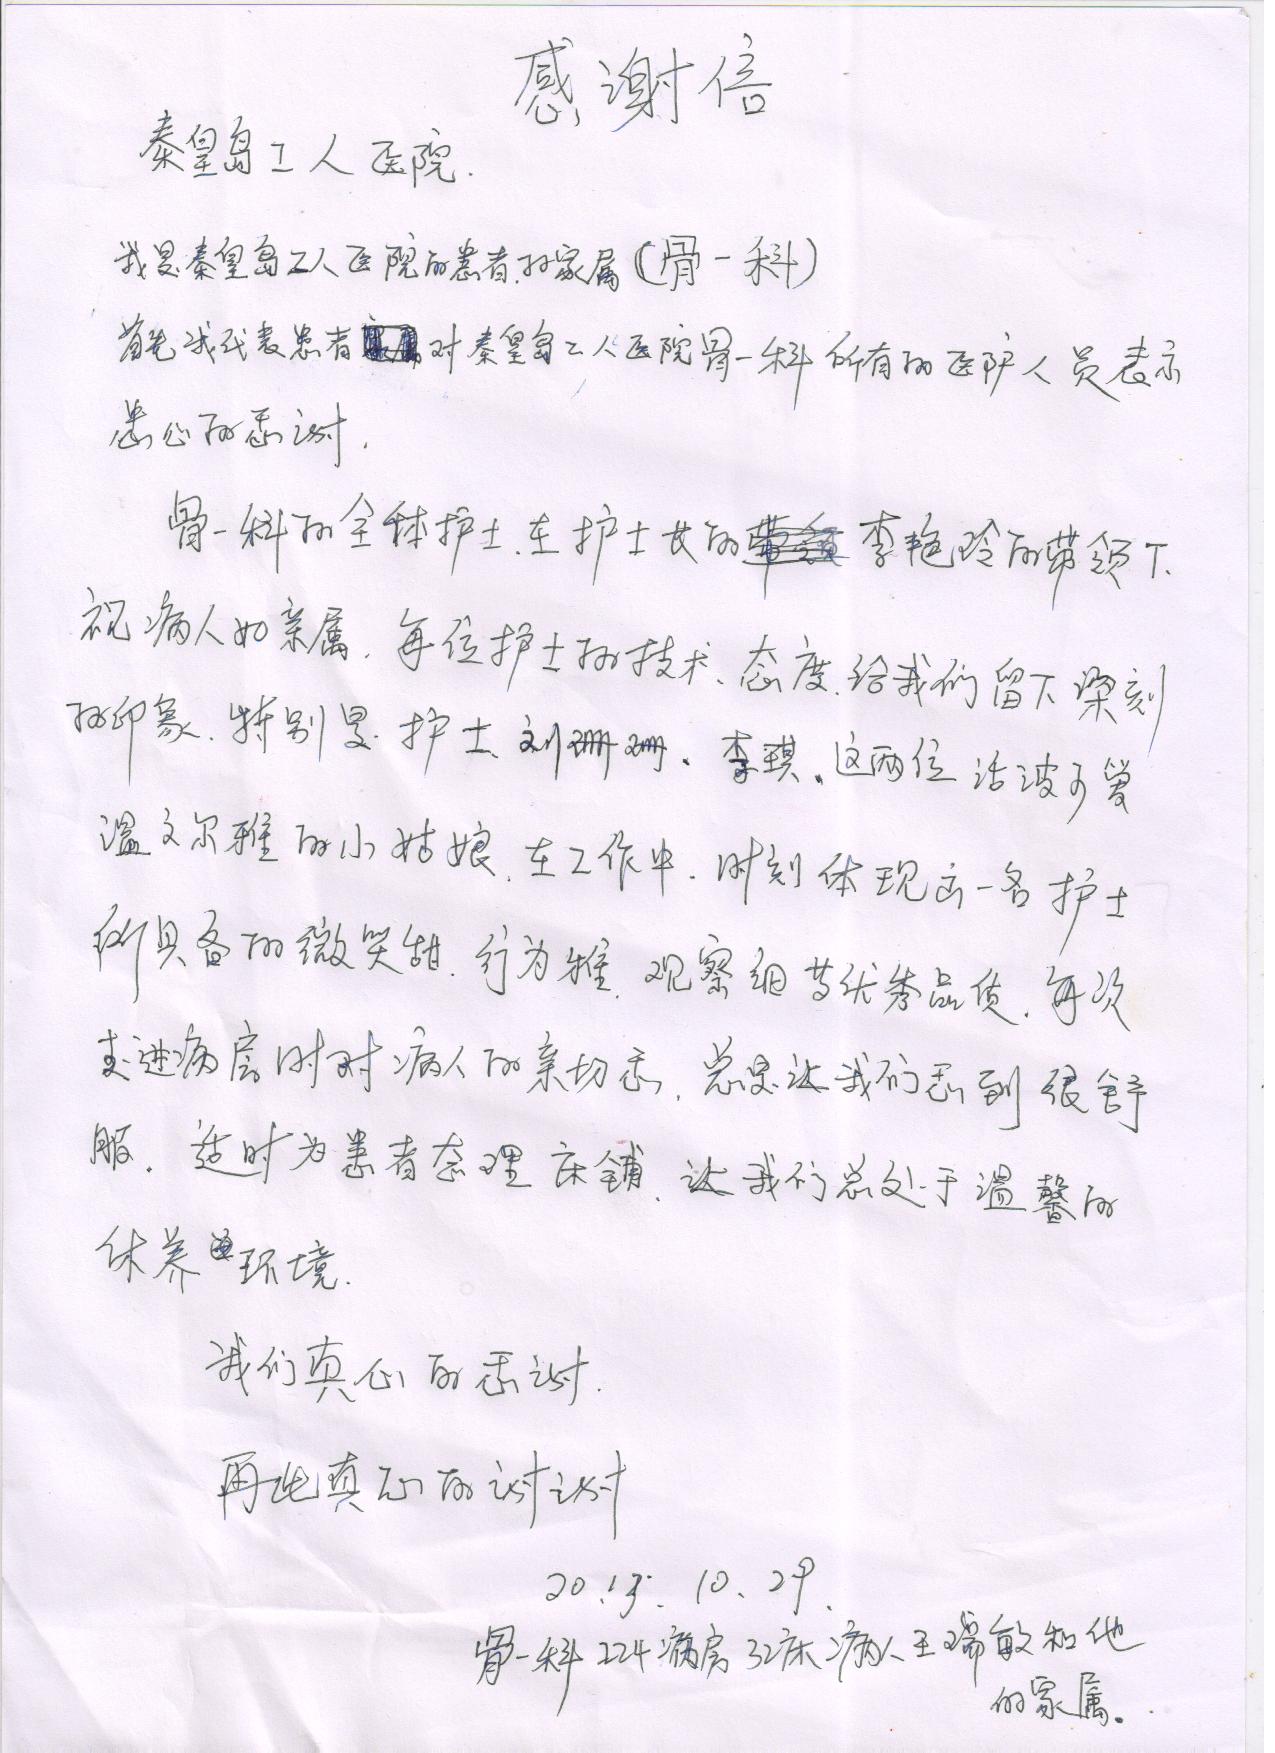 感谢信
秦皇岛工人医院.
我是秦皇岛工人医院的患者的家属(骨一科)
首先我代表患者对秦皇岛工人医院骨一科所有的医护人员表示
忠心的感谢.
骨一科的全体护士、在护士长的李艳玲的带领下、
视病人如亲属. 每位护士的技术、态度、给我们留下深刻
的印象. 特别是护士刘珊珊、李琪、这两位活波可爱
温文尔雅的小姑娘、在工作中. 时刻体现出一名护士
所具备的微笑甜. 行为雅. 观察细等优秀品质. 每次
走进病房时对病人的亲切感, 总是让我们感到很舒
服. 适时为患者整理床铺、让我们总处于温馨的
休养环境.
我们真心的感谢.
再此真心的谢谢
2013. 10. 29.
骨一科224病房32床病人王瑞敏和他
的家属.